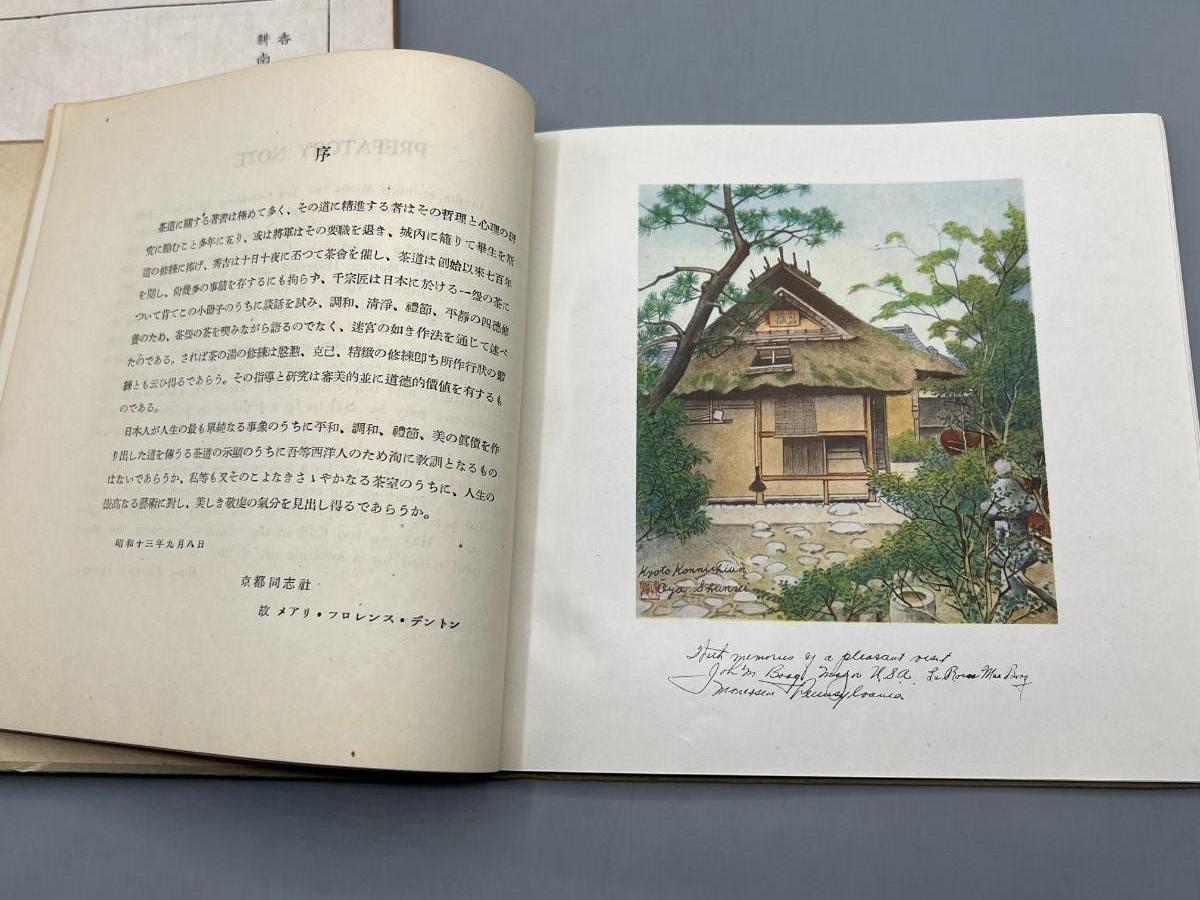 香
耕南
PREFATORY NOTE
序
茶道に關する著書は極めて多く、その道に精進する者はその哲理と心理の研
究に勵むこと多年に亙り、或は將軍はその要職を退き、城內に籠りて畢生を斯
道の修練に捧げ、秀吉は十日十夜に丕つて茶會を催し、茶道は創始以來七百年
を閲し、尙幾多の事蹟を存するにも拘らず、千宗匠は日本に於ける一盌の茶に
ついて昔てこの小冊子のうちに談話を試み、調和、清淨、禮節、平靜の四德修
養のため、茶盌の茶を喫みながら語るのでなく、迷宮の如き作法を通じて述べ
たのである。されば茶の湯の修練は慇懃、克己、精緻の修練卽ち所作行狀の鍛
練とも云ひ得るであらう。その指導と研究は審美的並に道德的價値を有するも
のである。
日本人が人生の最も單純なる事象のうちに平和、調和、禮節、美の眞價を作
り出した道を傳うる茶道の示顯のうちに吾等西洋人のため洵に敎訓となるもの
はないであらうか、私等も又そのこよなきさゝやかなる茶室のうちに、人生の
崇高なる藝術に對し、美しき敬虔の氣分を見出し得るであらうか。
昭和十三年九月八日
京都同志社
故 メアリ・フロレンス・デントン
Kyoto Konnichian
Oya Shunsei
With memories of a pleasant visit
John M Mayor U.S.A. La Rosa Mae
Monessen Pennsylvania